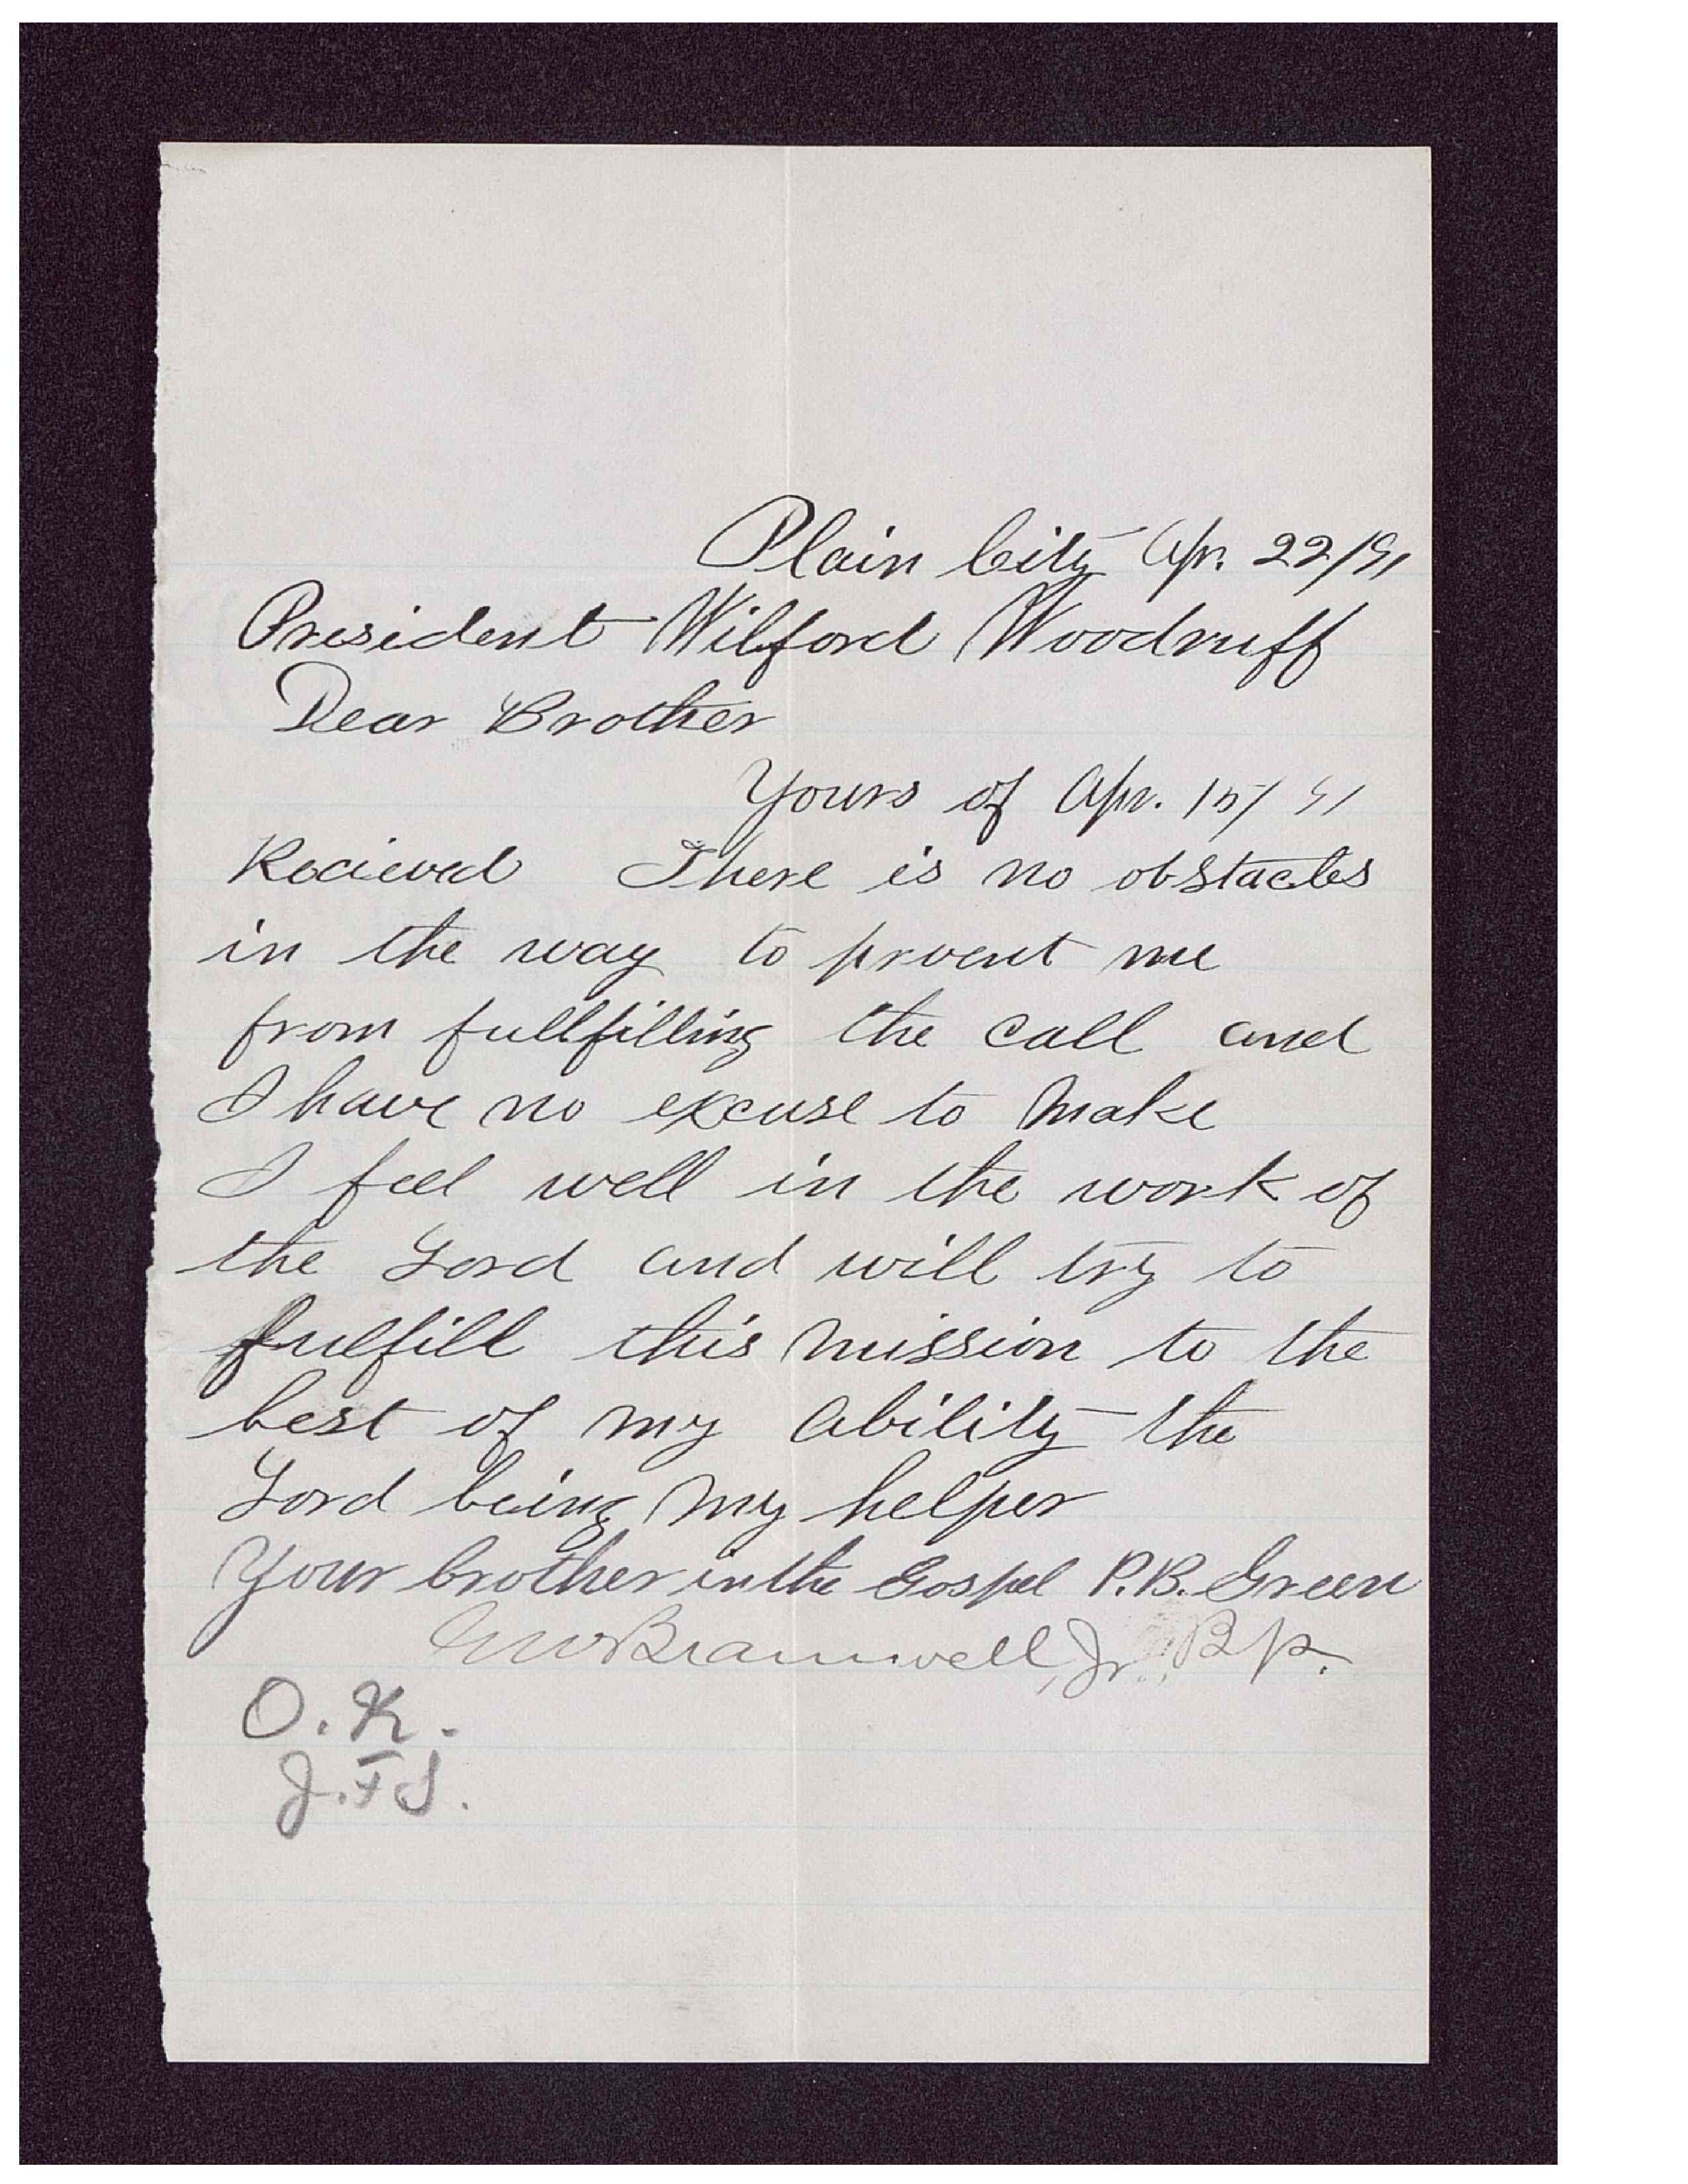 Plain City Apr. 22/91
President Wilford Woodruff
Dear Brother
Yours of Apr. 15/ 91
Recieved There is no obstacles
in the way to prvent me
from fullfilling the call and
I have no excuse to make
I feel well in the work of
the Lord and will try to
fulfill this mission to the
best of my ability the
Lord being my helper
Your brother in the Gospel P.B. Green
G W Bramwell, Jr. Bp.
O.K.
J.F.S.